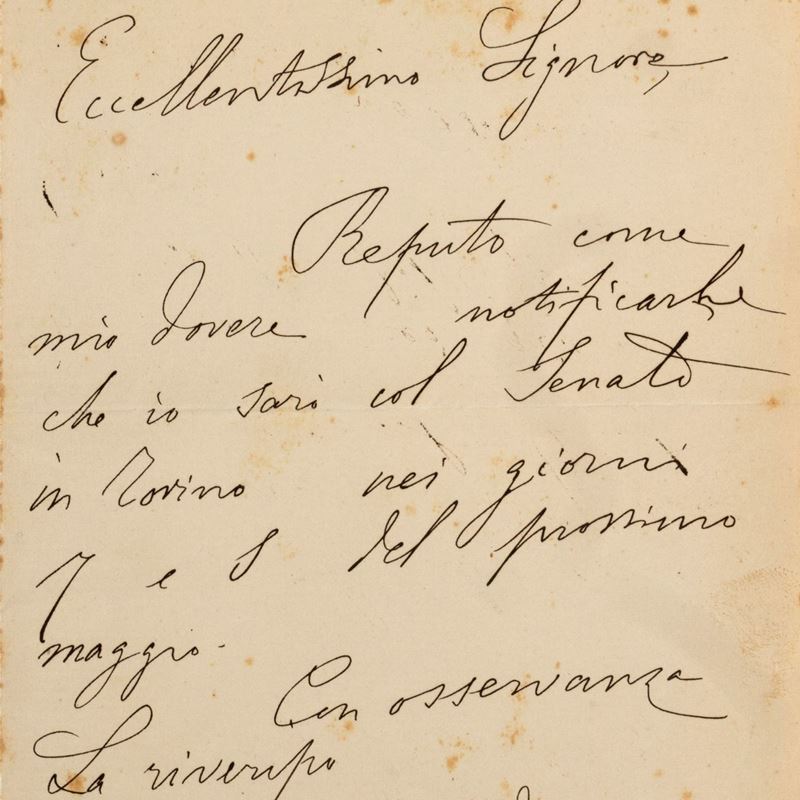 Eccellentissimo Signore,
Reputo come
mio dovere notificarle
che io sarò col Senato
in Torino nei giorni
7 e 8 del prossimo
maggio.
Con osservanza
La riverisco